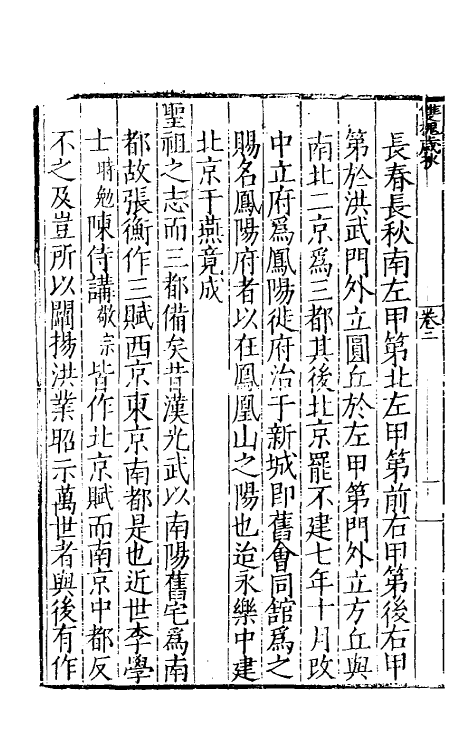 雙槐歲抄
卷二
長春長秋南左甲第北左甲第前右甲第後右甲
第於洪武門外立圓丘於左甲第門外立方丘與
南北二京爲三都其後北京罷不建七年十月改
中立府爲鳳陽徙府治于新城即舊會同舘爲之
賜名鳳陽府者以在鳳凰山之陽也迨永樂中建
北京于燕竟成
聖祖之志而三都備矣昔漢光武以南陽舊宅爲南
都故張衡作三賦西京東京南都是也近世李學
士時勉陳侍講敬宗皆作北京賦而南京中都反
不之及豈所以闡揚洪業昭示萬世者與後有作